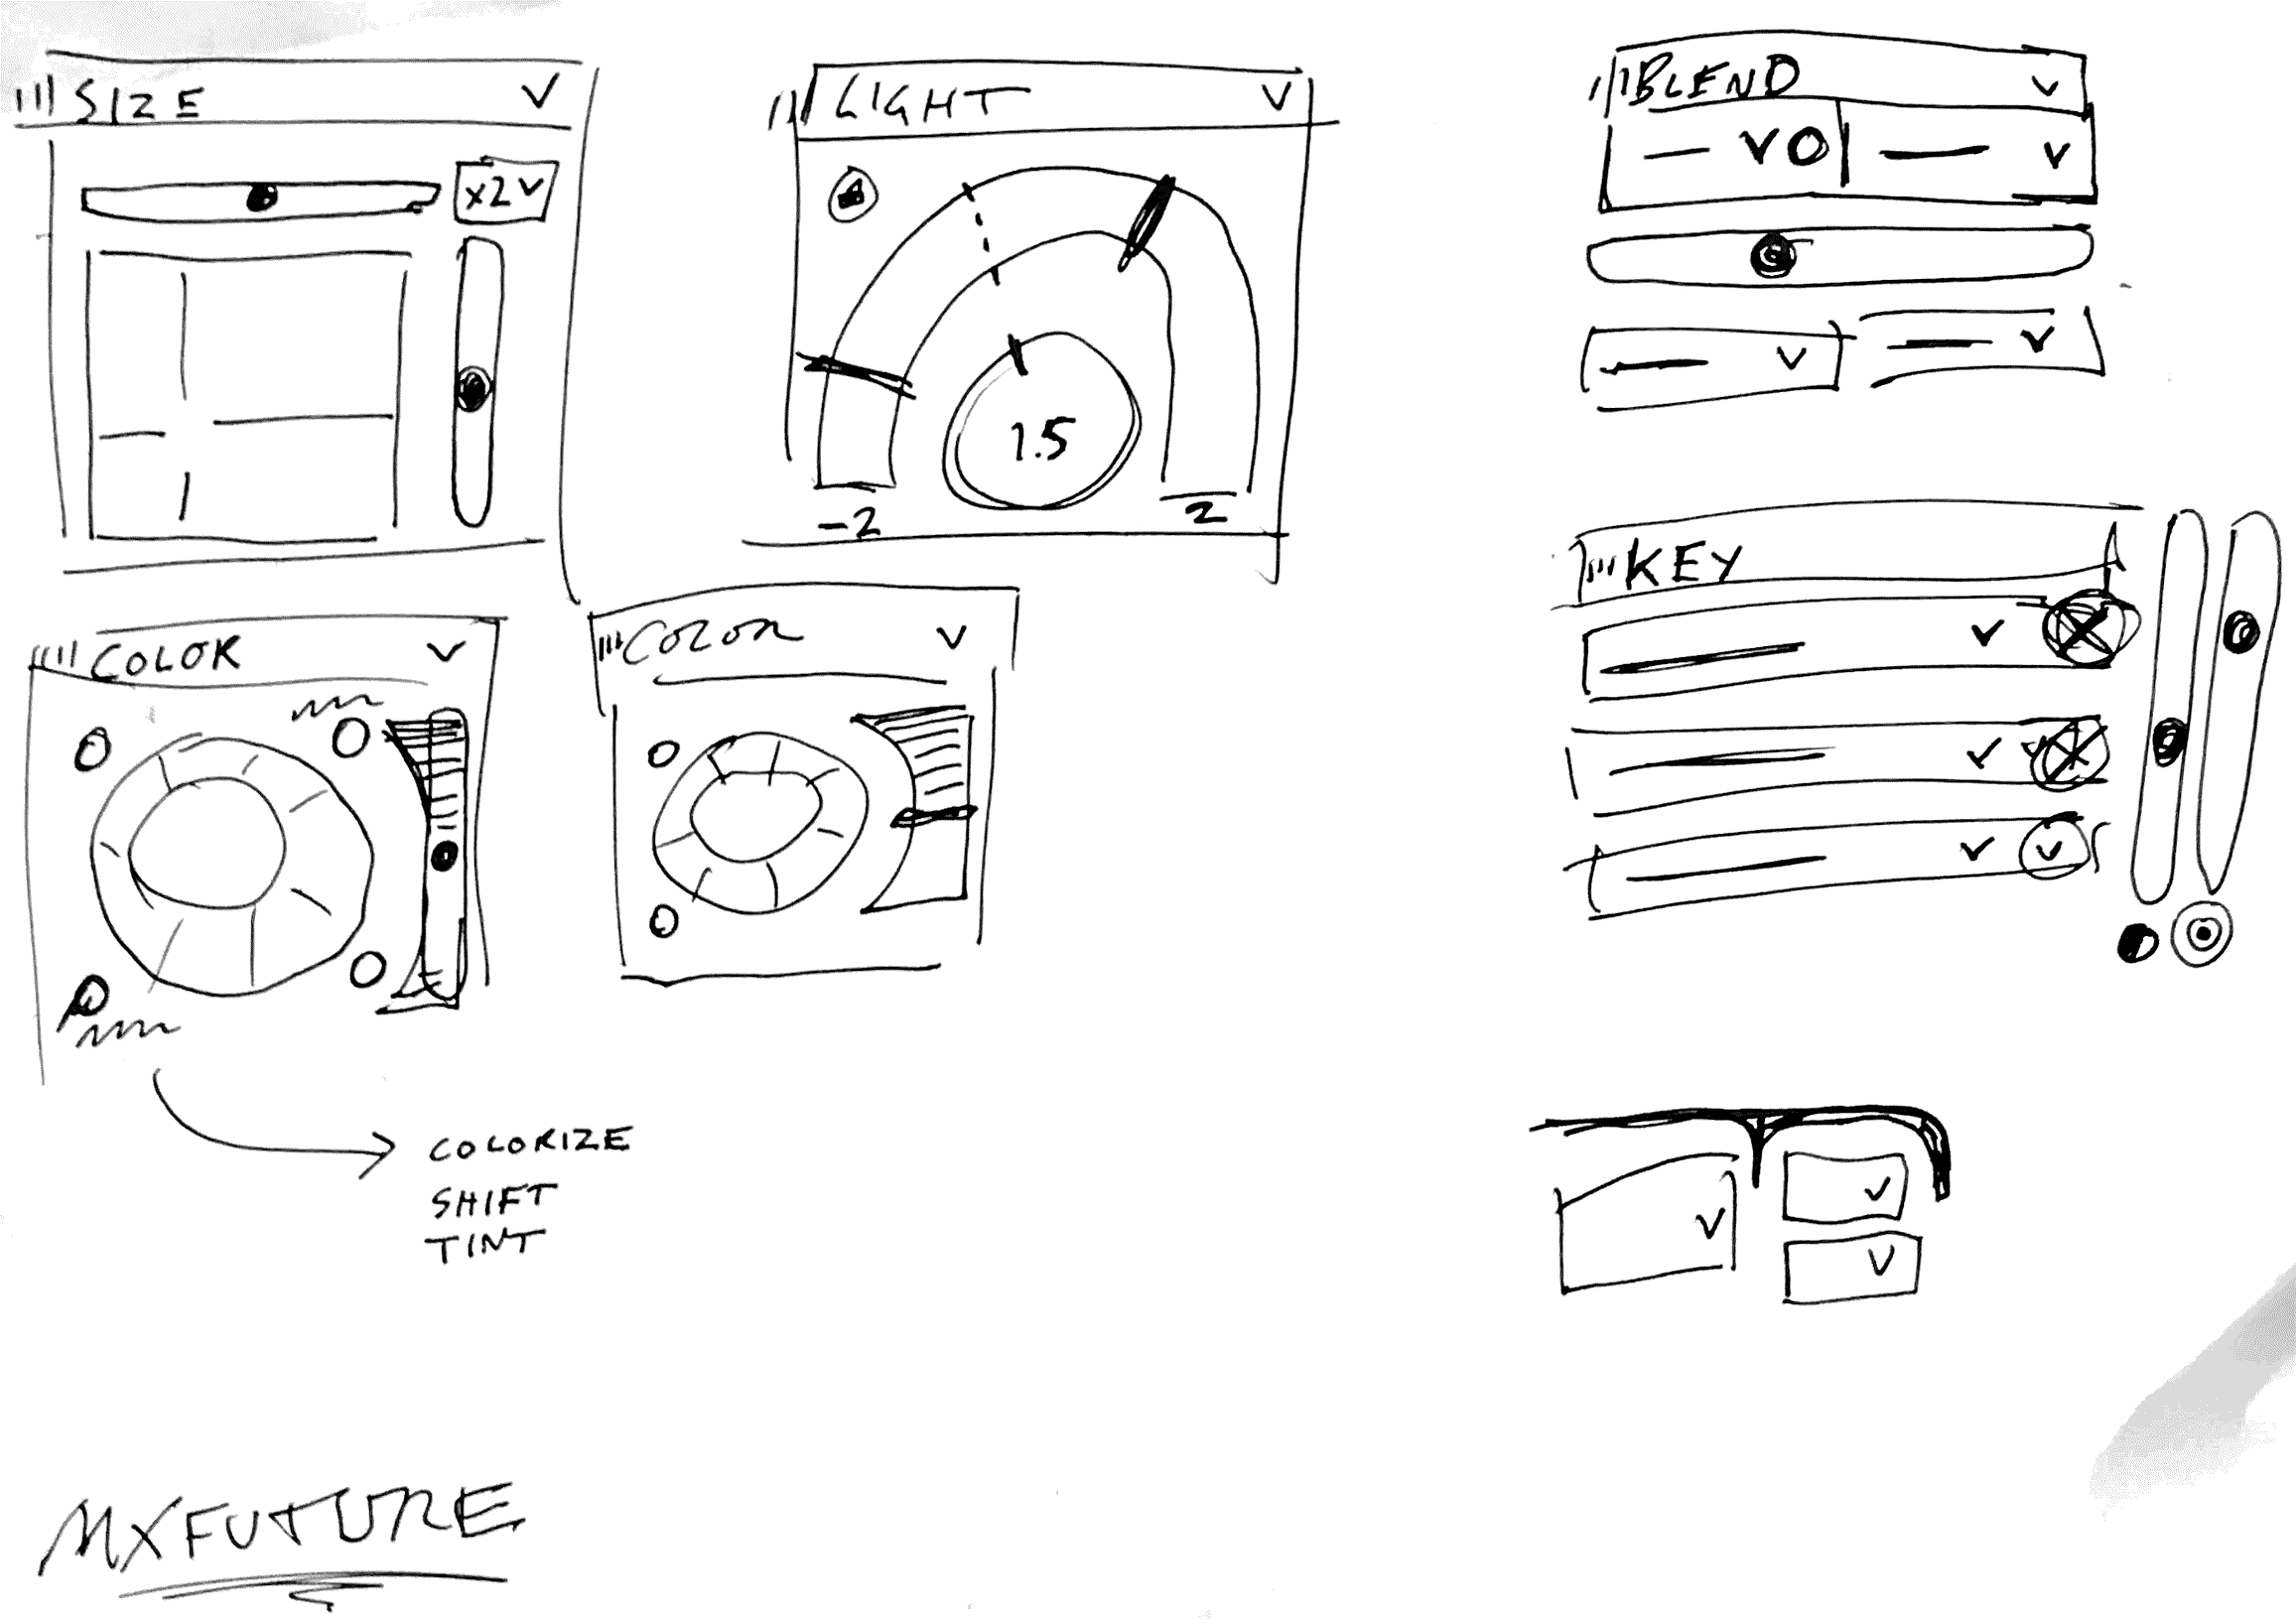 SIZE
x2
LIGHT
1.5
-2
2
BLEND
KEY
COLOR
COLOR
COLORIZE
SHIFT
TINT
MXFUTURE